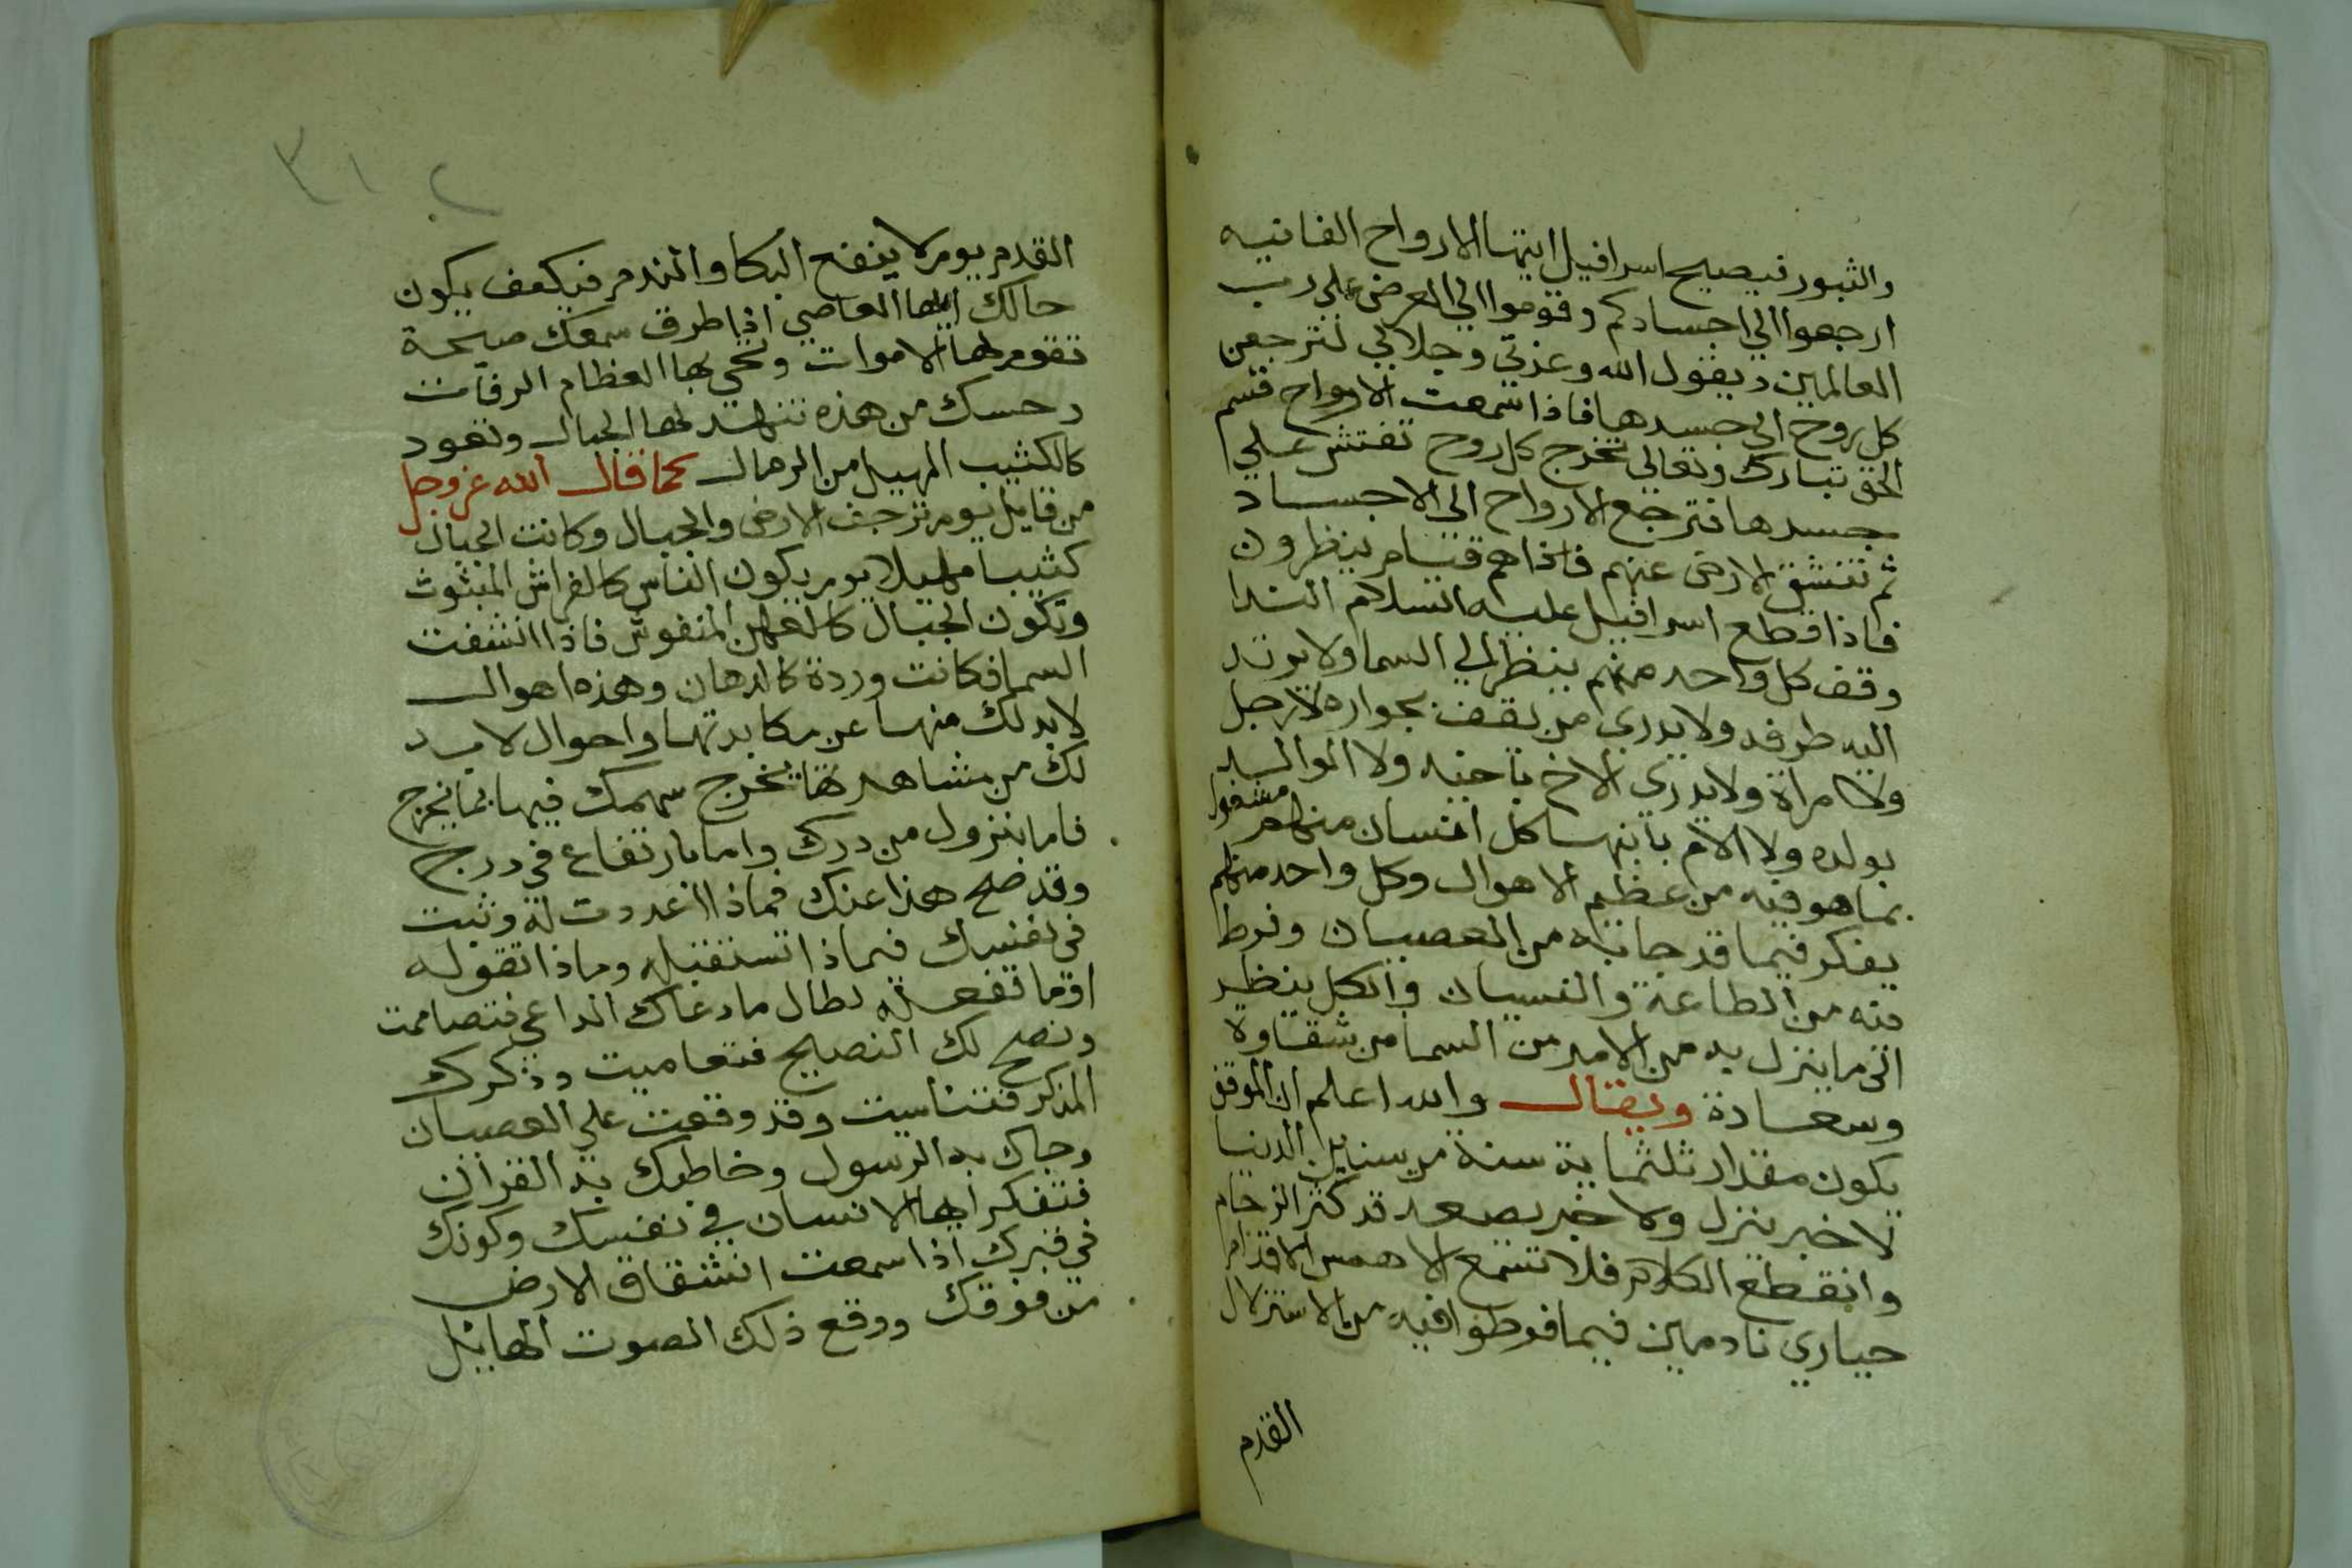 والثبور فيصيح اسرافيل ايتها الارواح الفانيه
ارجعوا الي اجسادكم وقوموا الي العرض علي رب
العالمين ويقول الله وعزتي وجلالي لترجعن
كل روح الي جسدها فاذا سمعت الارواح قسم
الحق تبارك وتعالى تخرج كل روح تفتش علي
جسدها فترجع الارواح الى الاجساد
ثم تنشق الارض عنهم فاذاهم قيام ينظرون
فاذا قطع اسرافيل عليه السلام الندا
وقف كل واحد منهم ينظر الي السما ولا يرتد
اليه طرفه ولا يدري من يقف بجواره لا رجل
ولا امراة ولا يدري الاخ باخيه ولا الوالد
بولده ولا الام بابنها كل انسان منهم مشغول
بما هو فيه من عظيم الاهوال وكل واحد منهم
يفكر فيما قد جا به من العصيان وفرط
فيه من الطاعة والنسيان والكل ينظر
الى ما ينزل به من الامر من السما من شقاوة
وسعادة ويقال والله اعلم ان الموقف
يكون مقدار ثلثماية سنة من سنين الدنيا
لا خبر ينزل ولا خبر يصعد قد كثر الزحام
وانقطع الكلام فلا تسمع الا همس الاقدام
حياري نادمين فيما فرطوا فيه من الاستزلال
القدم
٣١٢
القدم يوم لا ينفع البكا والندم فكيف يكون
حالك ايها العاصي اذا طرق سمعك صيحة
تقوم لها الاموات وتحي بها العظام الرفات
وحسك من هذه تنهد لها الجبال وتعود
كالكثيب المهيل من الرمال كما قال الله عز وجل
من قايل يوم ترجف الارض والجبال وكانت الجبال
كثيبا مهيلا يوم يكون الناس كالفراش المبثوث
وتكون الجبال كالعهن المنفوش فاذا انشقت
السما فكانت وردة كالدهان وهذه اهوال
لا بد لك منها عن مكابدتها واحوال لا بد
لك من مشاهدتها يخرج سهمك فيها بما يخرج
فاما بنزول من درك واما بارتفاع في درج
وقد صح هذا عنك فماذا اعددت له وثبت
في نفسك فيماذا تستقبله وماذا تقوله
او ما تفعله لطال ما دعاك الداعي فتصاممت
ونصح لك النصيح فتعاميت وذكرك
المذكر فتناسيت وقد وقعت علي العصيان
وجاك به الرسول وخاطبك به القران
فتفكر ايها الانسان في نفسك وكونك
في قبرك اذا سمعت انشقاق الارض
من فوقك ووقع ذلك الصوت الهايل